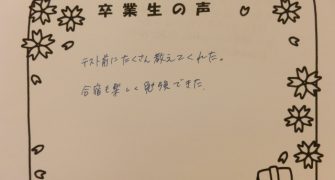 卒業生の声
テスト前にたくさん教えてくれた。
合宿も楽しく勉強できた.